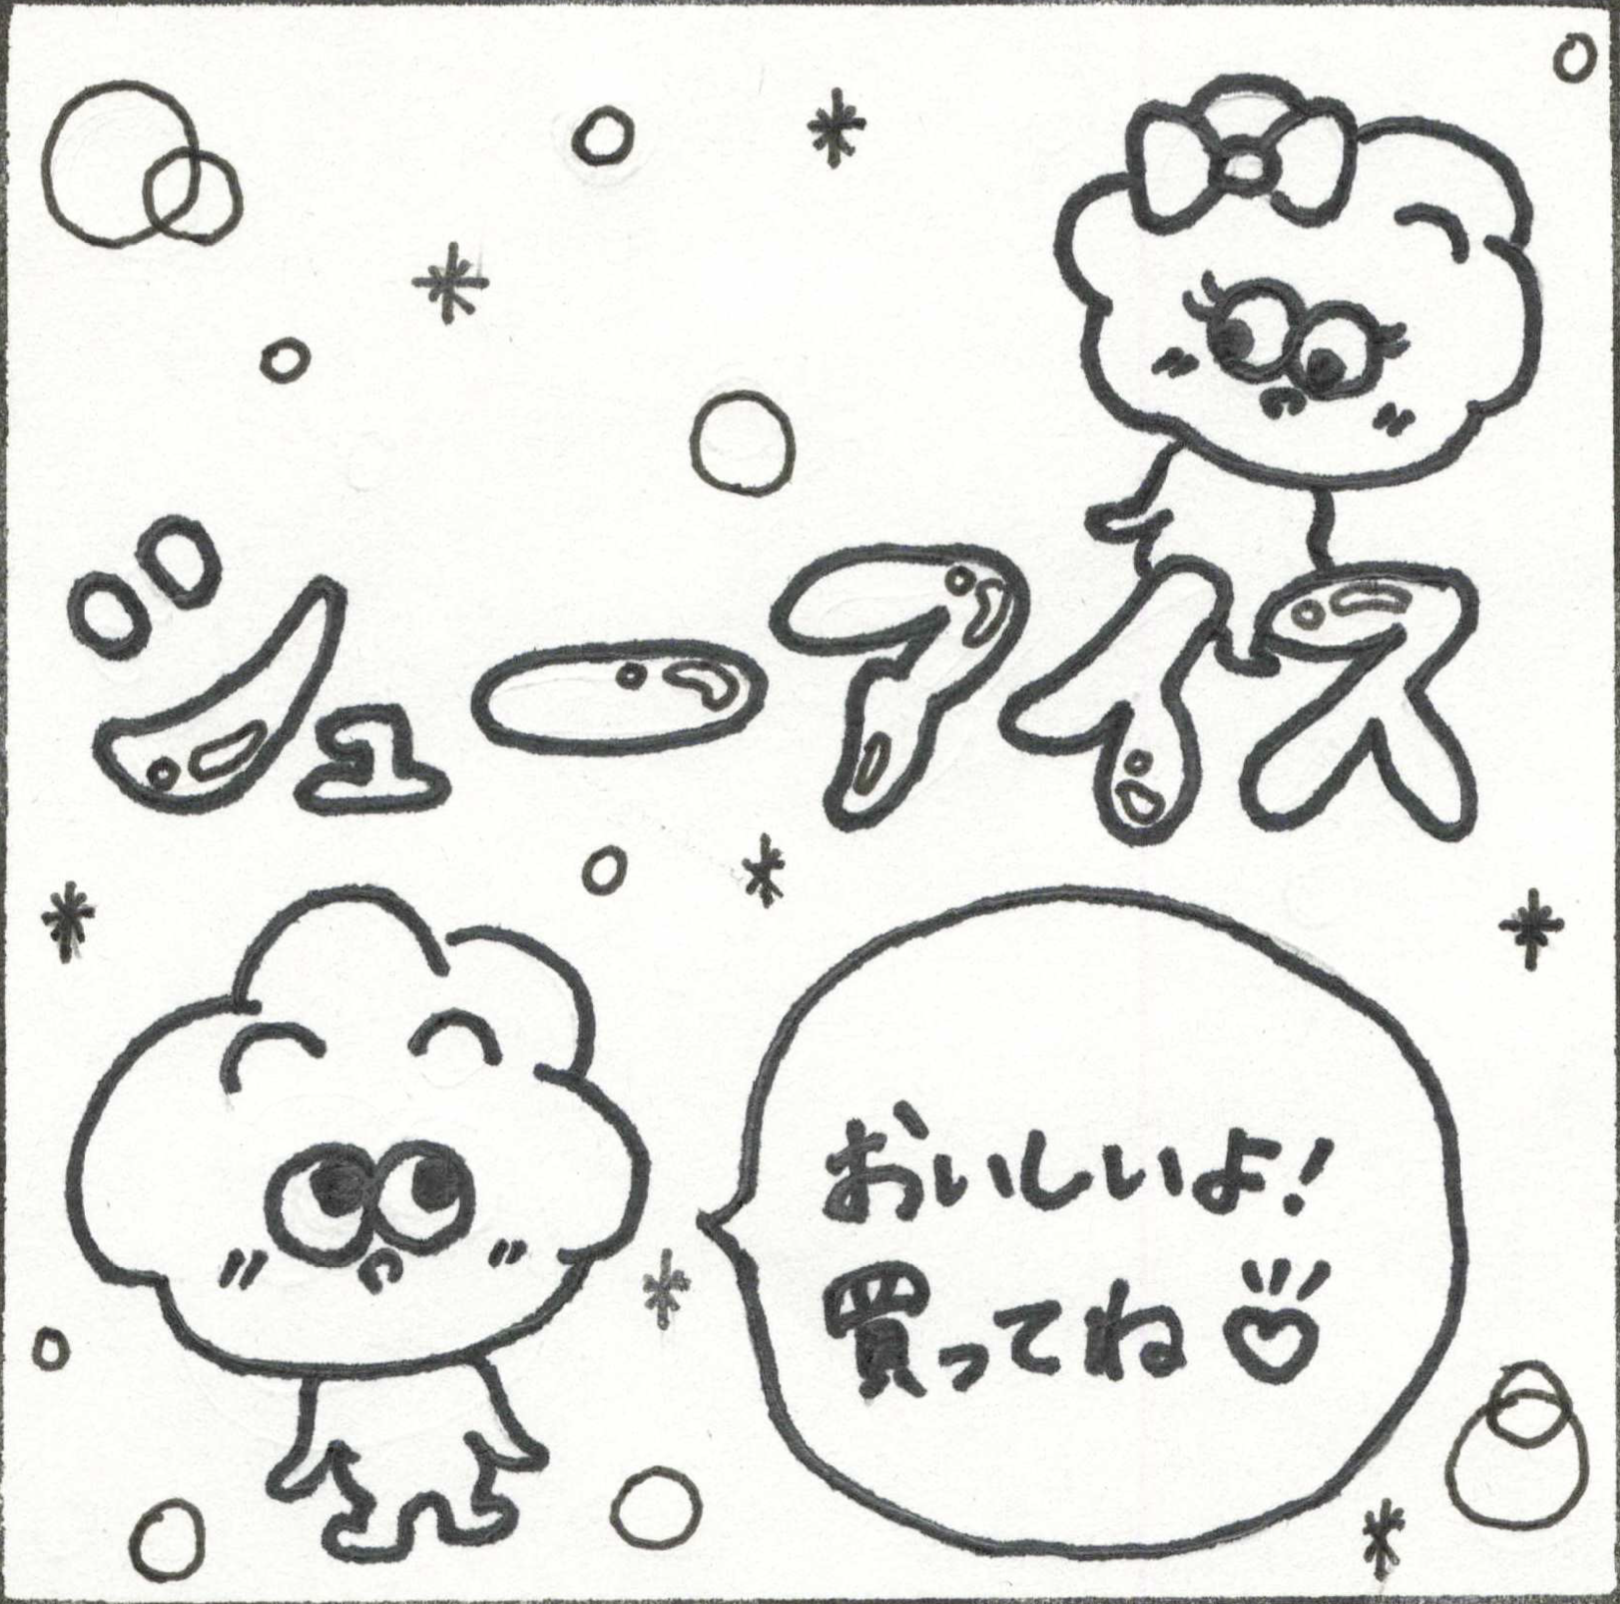 シューアイス
おいしいよ!
買ってね♡